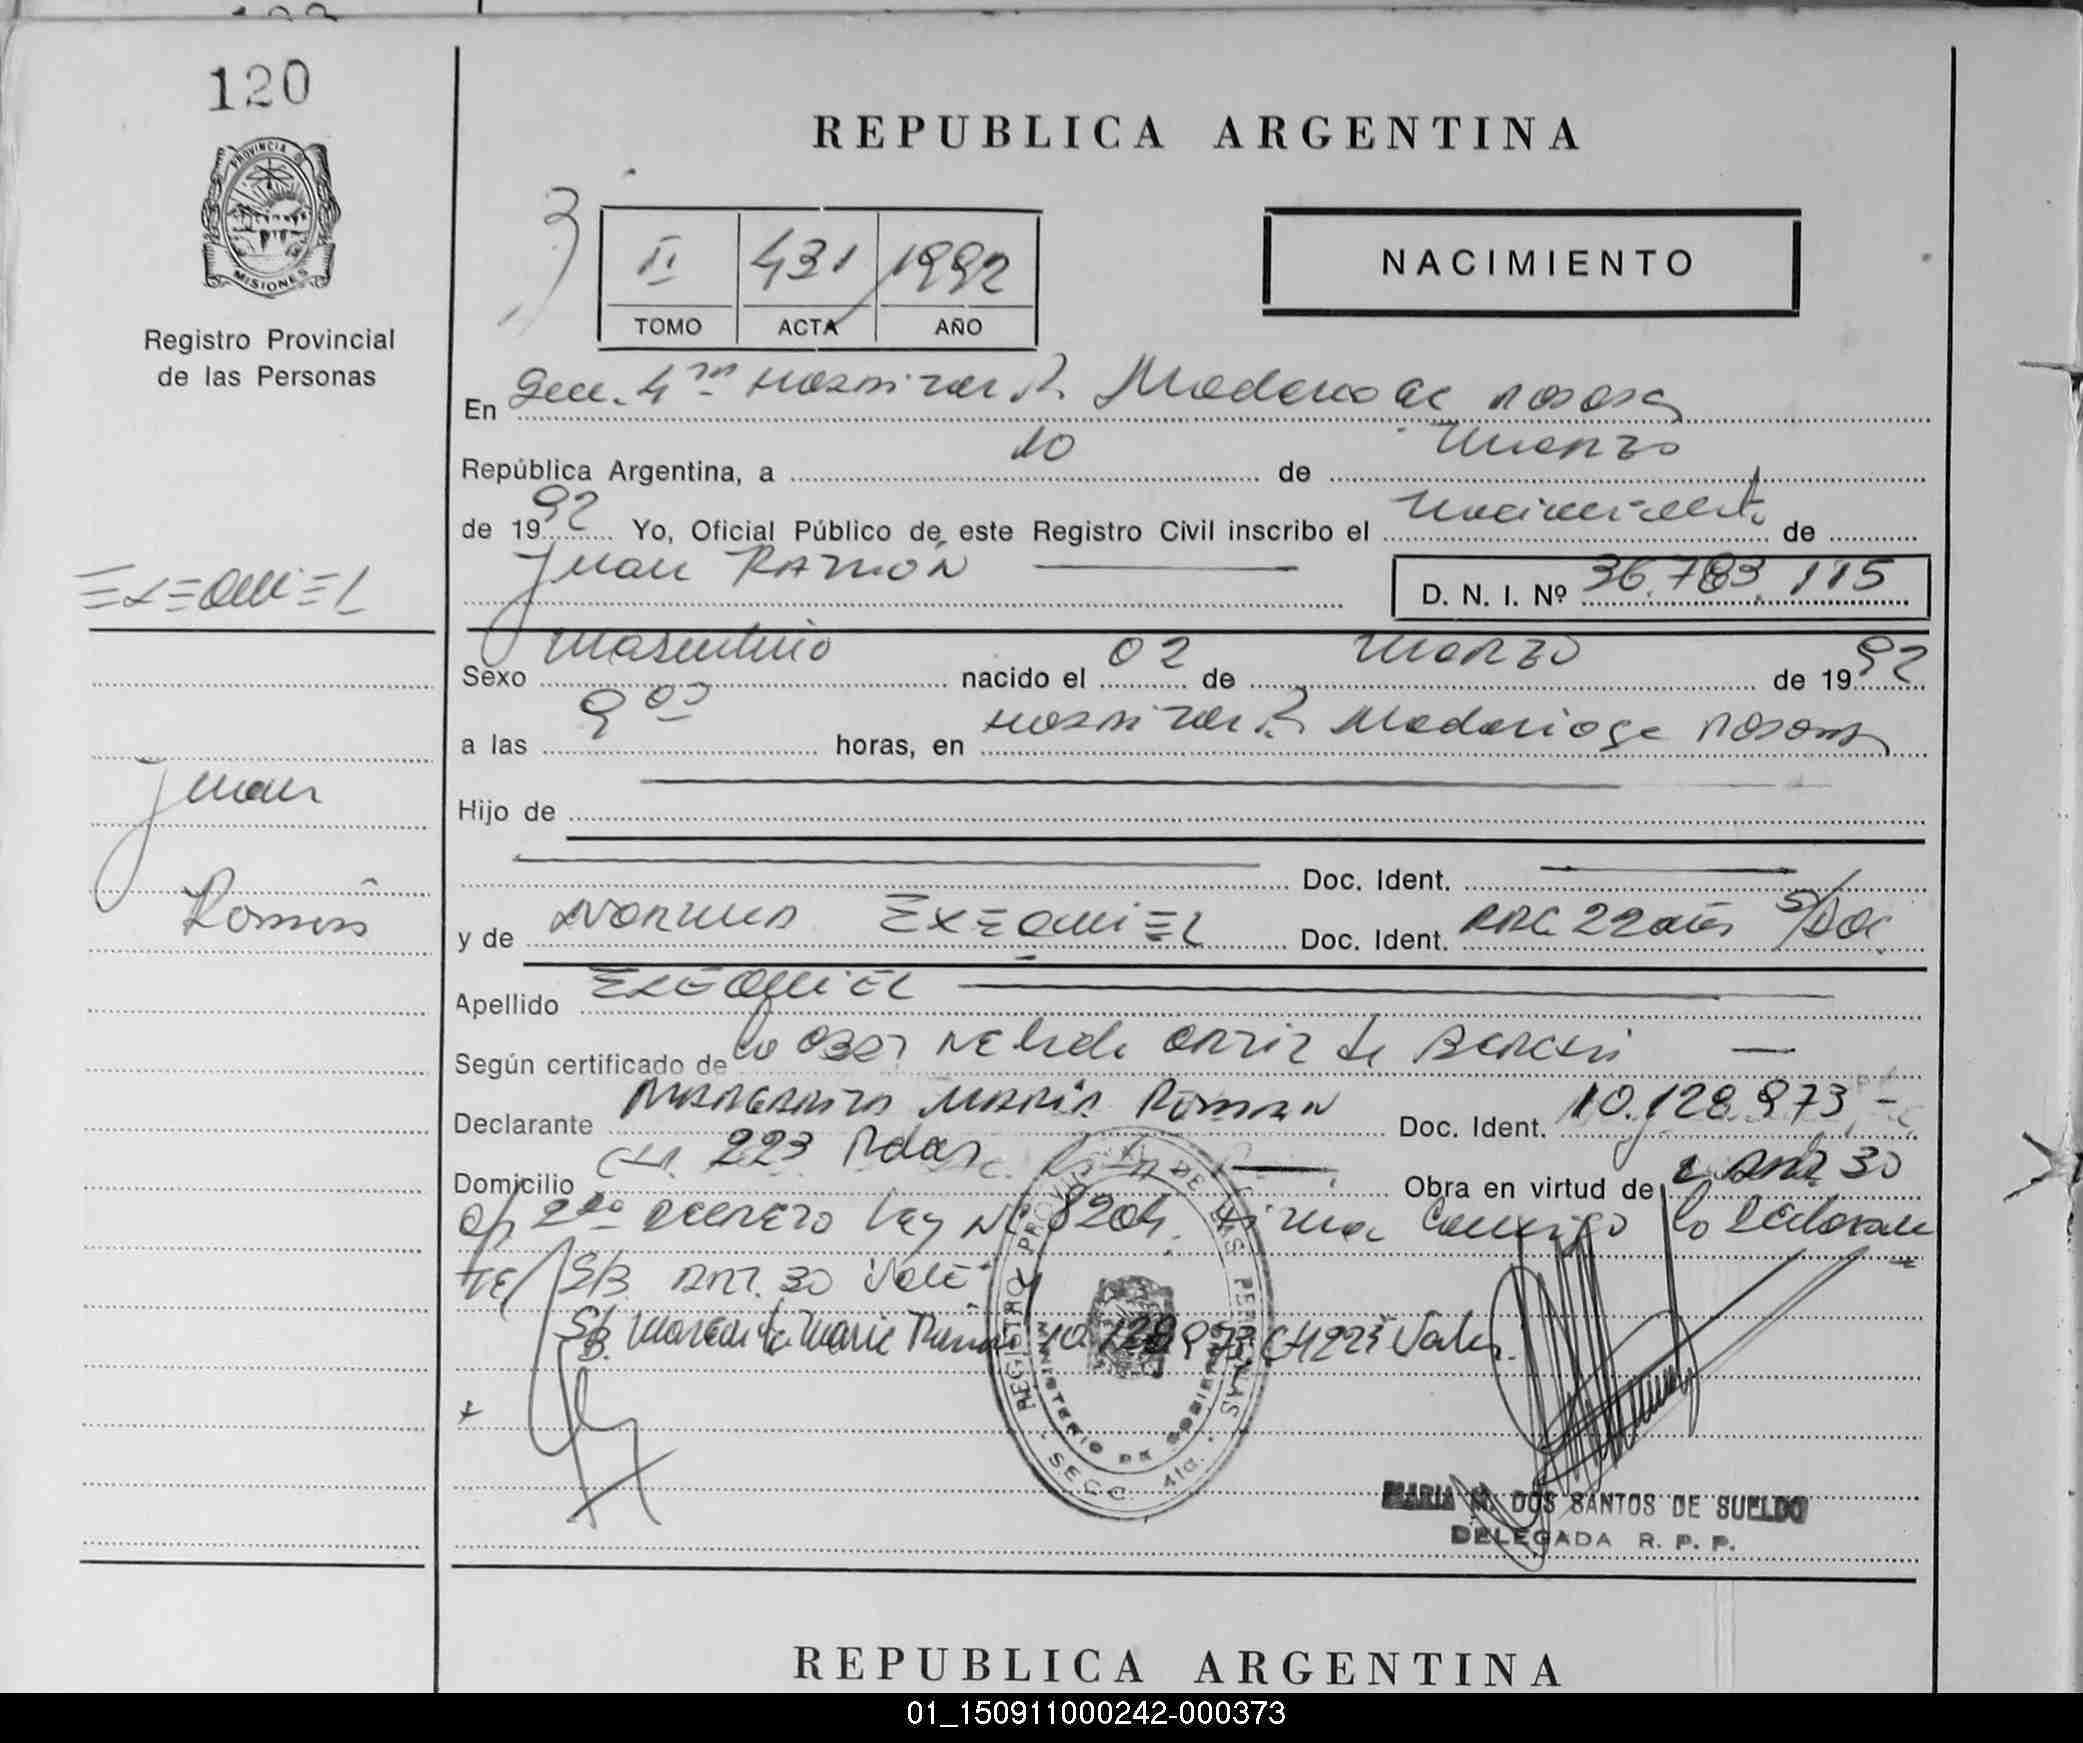 120
REPUBLICA ARGENTINA
PROVINCIA DE
MISIONES
Registro Provincial
de las Personas
II 431 1992
TOMO ACTA AÑO
NACIMIENTO
En Secc. 4ta Hospital R. Madariaga Posadas
República Argentina, a 10 de Marzo
de 1992 Yo, Oficial Público de este Registro Civil inscribo el Nacimiento de
Juan RAMÓN
D. N. I. Nº 36.783.115
EXEQUIEL
Juan
Ramón
Sexo Masculino nacido el 02 de Marzo de 1992
a las 9 00 horas, en Hospital R. Madariaga Posadas
Hijo de
Doc. Ident.
y de NORMA EXEQUIEL Doc. Ident. 22 años S/Doc.
Apellido EXEQUIEL
Según certificado de la Obst Nelida ORTIZ de
Declarante MARGARITA MARIA ROMAN Doc. Ident. 10.128.973
Domicilio CH. 223 Pdas. Obra en virtud de Art 30
Ap 2do DECRETO Ley Nº 8204. Firma Conmigo la Declaran
TE/ S/B. ART. 30 Vale
S/B. Margarita Maria Roman 10.128.973 CH 223 Vale.
REGISTRO PROVINCIAL DE LAS PERSONAS
MINISTERIO DE GOBIERNO
SECC. 4ta.
MARIA M. DOS SANTOS DE SUELDO
DELEGADA R. P. P.
REPUBLICA ARGENTINA
01_150911000242-000373